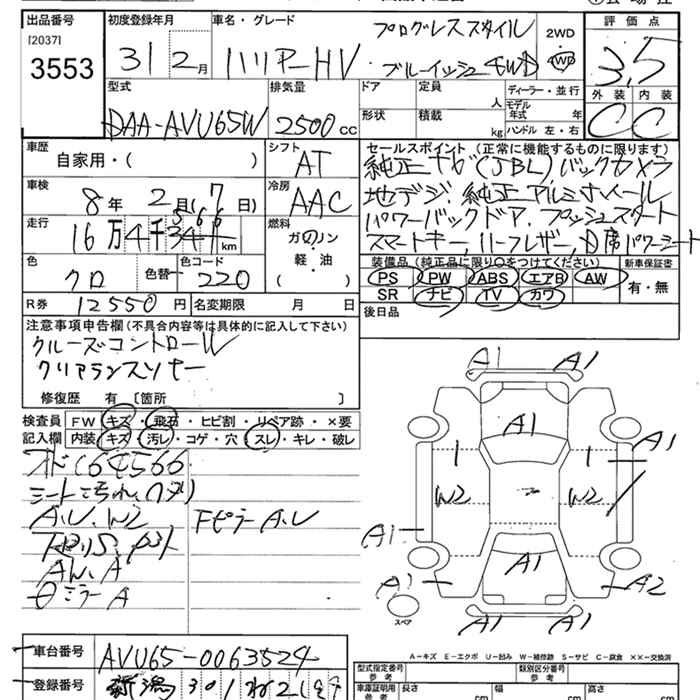 出品番号 初度登録年月 車名・グレード プログレススタイル 2WD 評価点
[2037] 3553 31 2月 ハリアーHV ブルーイッシュ 4WD 4WD 3.5
型式 排気量 ドア 定員 人 ディーラー・並行 外装 内装
DAA-AVU65W 2500cc 形状 積載 kg モデル年式 年 ハンドル 左・右 C C
車歴 シフト セールスポイント (正常に機能するものに限ります)
自家用・( ) AT 純正ナビ(JBL)バックカメラ
車検 冷房 地デジ、純正アルミホイール
8年 2月(7日) AAC パワーバックドア、プッシュスタート
走行 燃料 スマートキー、ハーフレザー、D席パワーシート
16万4千 km ガソリン 軽・油 ( )
装備品 (純正品に限り○をつけてください) 新車保証書
色 クロ 色替 色コード 220 PS PW ABS エアB AW 有・無
SR ナビ TV カワ
R券 12550円 名変期限 月 日 後日品
注意事項申告欄 (不具合内容等は具体的に記入して下さい)
クルーズコントロール
クリアランスソナー
修復歴 有 [箇所
検査員 FW キズ・飛石・ヒビ割・リペア跡・×要
記入欄 内装 キズ・汚レ・コゲ・穴・スレ・キレ・破レ
オド164566
シートよごれ
A.U.W2 Fピラー A.U
AW.A
ミラーA
A1 A1
A1
1 1 A1
W2 W2
A1
A1 A1 A2
スペア
A1 A1
A-キズ E-エクボ U-凹み W-補修跡 S-サビ C-腐食 XX-交換済
車台番号 AVU65-0063524
型式指定番号 参考 類別区分番号 参考
登録番号 新潟 301
車庫証明用 参考 長さ cm 幅 cm 高さ cm